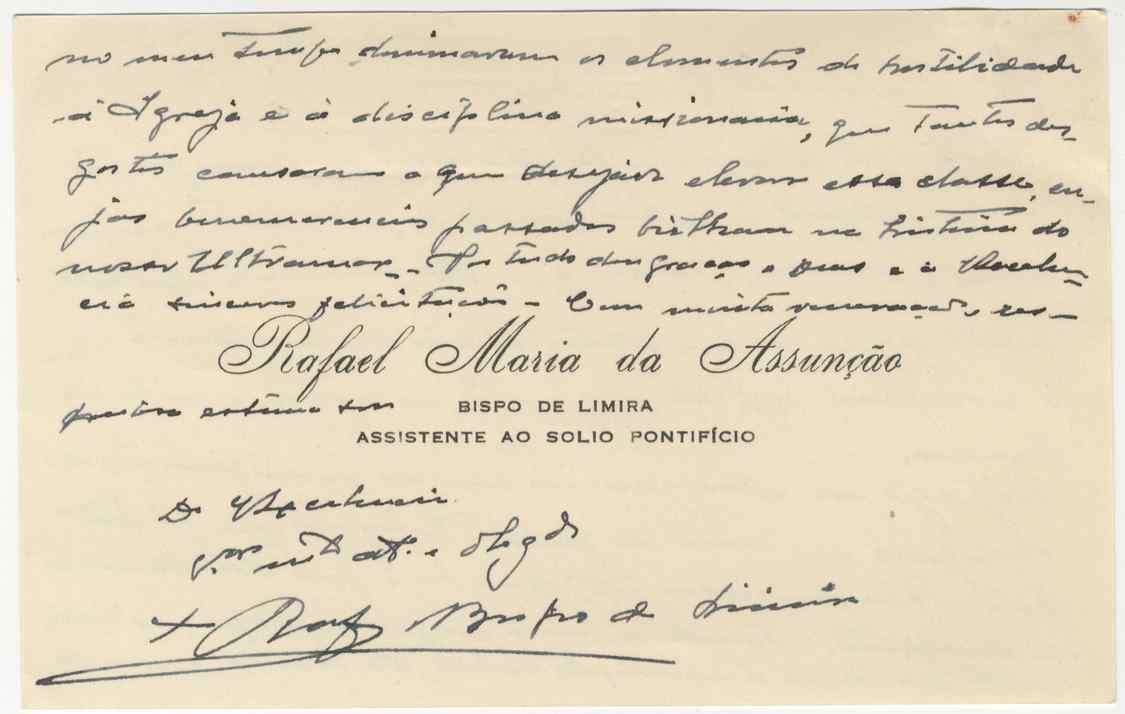 no meu tempo dominavam os elementos de hostilidade
à Igreja e à disciplina missionaria, que tantos des-
gostos causaram a quem desejava elevar essa classe, cu-
jas benemerencias passadas brilham na historia do
nosso Ultramar. - Por tudo dou graças a Deus e a
sinceras felicitações - Com muita veneração, res-
Rafael Maria da Assunção
estima sou
BISPO DE LIMIRA
ASSISTENTE AO SOLIO PONTIFÍCIO
De V.
mto atº e obgdo
+ Raf Bispo de Limira